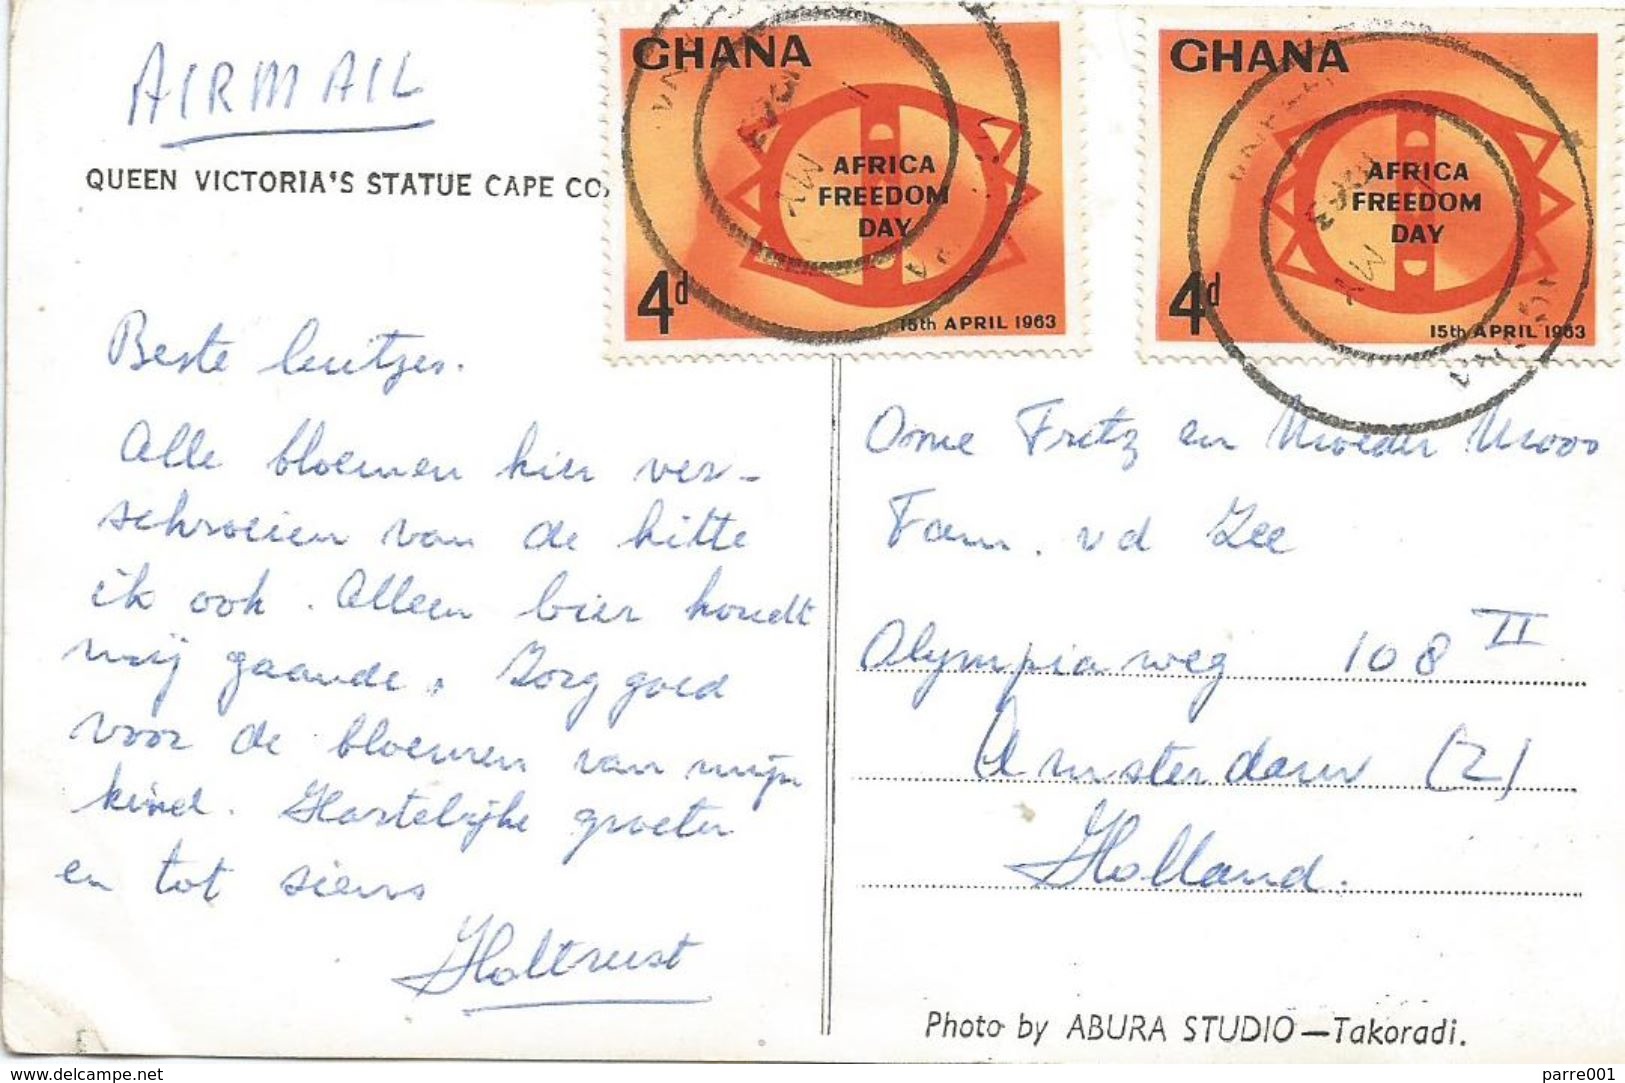 AIRMAIL
QUEEN VICTORIA'S STATUE CAPE CO
GHANA
AFRICA
FREEDOM
DAY
4d
15th APRIL 1963
GHANA
AFRICA
FREEDOM
DAY
4d
15th APRIL 1963
Beste luitjes.
Alle bloemen hier ver-
schroeien van de hitte
ik ook. Alleen bier houdt
mij gaande. Zorg goed
voor de bloemen van mijn
kind. Hartelijke groeten
en tot ziens
Ome Fritz en Moeder
Fam. vd Zee
Olympiaweg 108 II
Amsterdam (Z)
Holland.
Photo by ABURA STUDIO—Takoradi.
delcampe.net
parre001